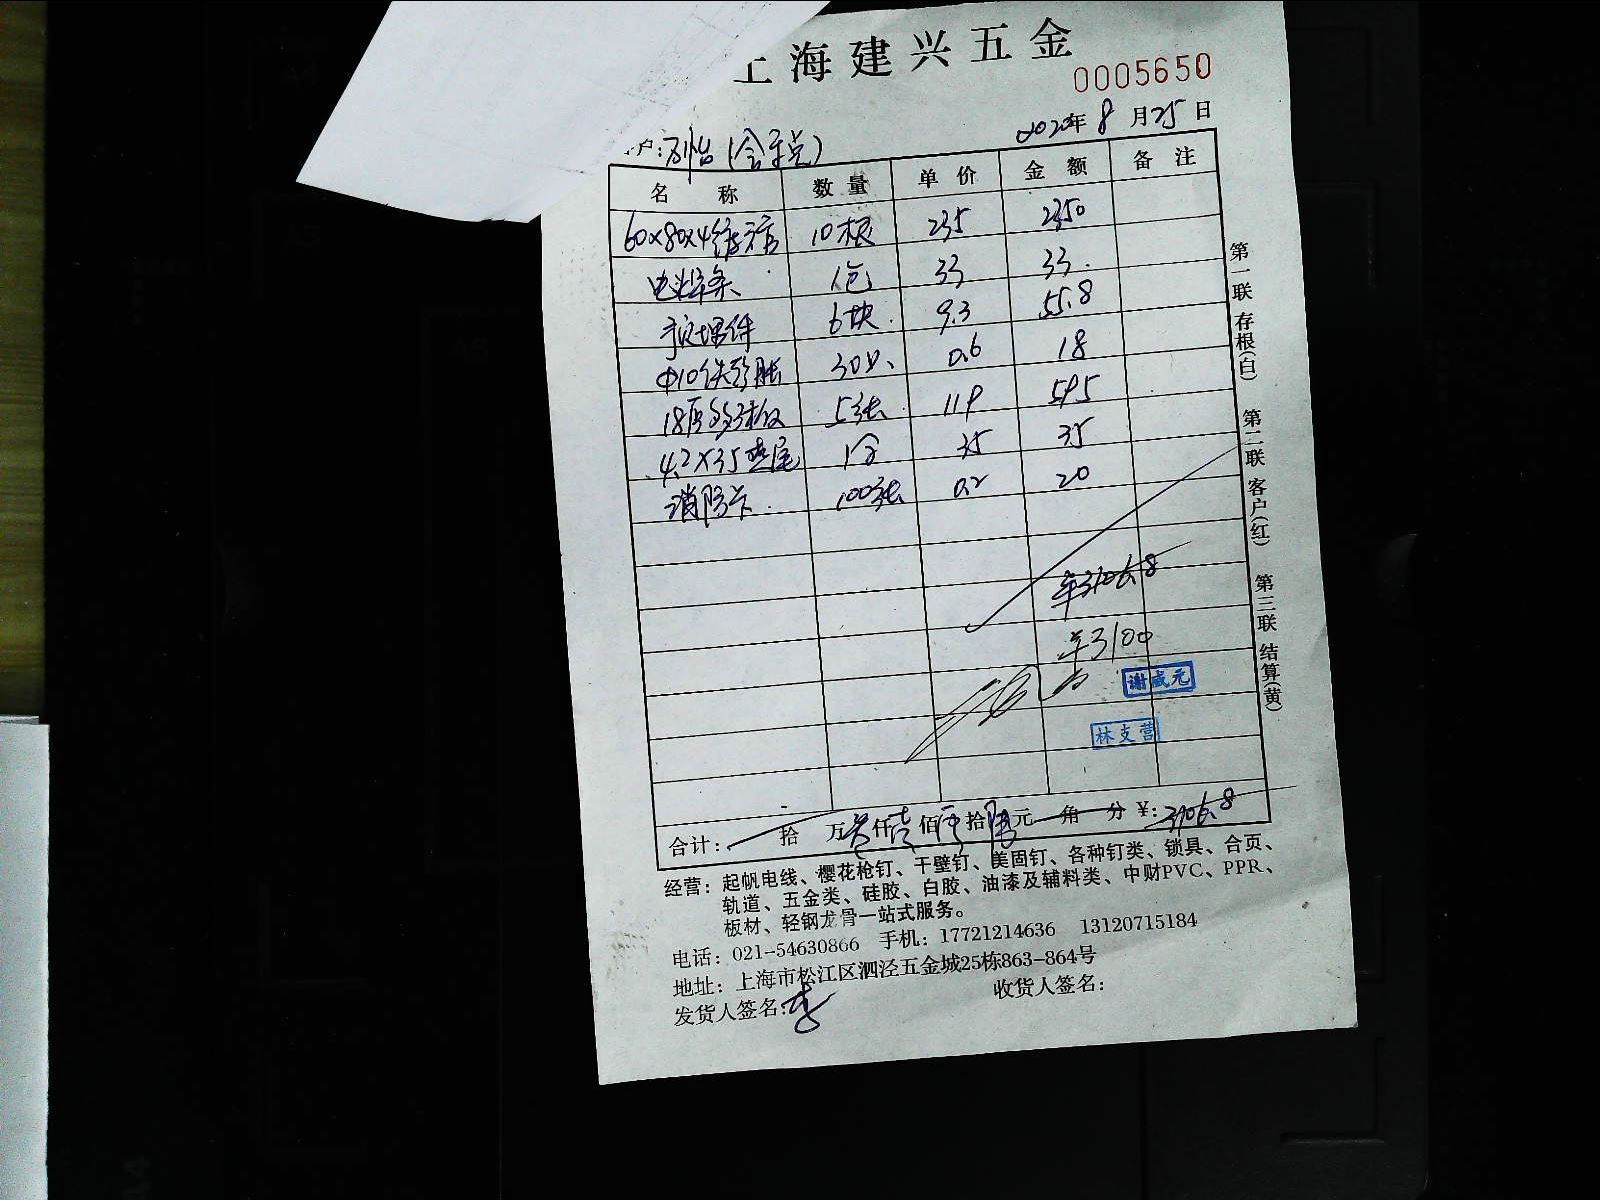 上海建兴五金
0005650
2020年8月25日
户: (含税)
名称 数量 单价 金额 备注
60×80×4 10根 235 2350
电焊条 1包 33 33.
预埋件 6块 9.3 55.8
Φ10铁膨胀 30只 0.6 18
18厚多层板 5张 119 595
4.2×35 1盒 35 35
消防卡 100张 0.2 20
3106.8
3100
谢成元
林支营
合计: 拾 万叁仟壹佰零拾陆元 角 分 ¥:3106.8
经营:起帆电线、樱花枪钉、干壁钉、美固钉、各种钉类、锁具、合页、
轨道、五金类、硅胶、白胶、油漆及辅料类、中财PVC、PPR、
板材、轻钢龙骨一站式服务。
电话:021-54630866 手机:17721214636 13120715184
地址:上海市松江区泗泾五金城25栋863-864号
发货人签名:李 收货人签名:
第一联 存根(白) 第二联 客户(红) 第三联 结算(黄)